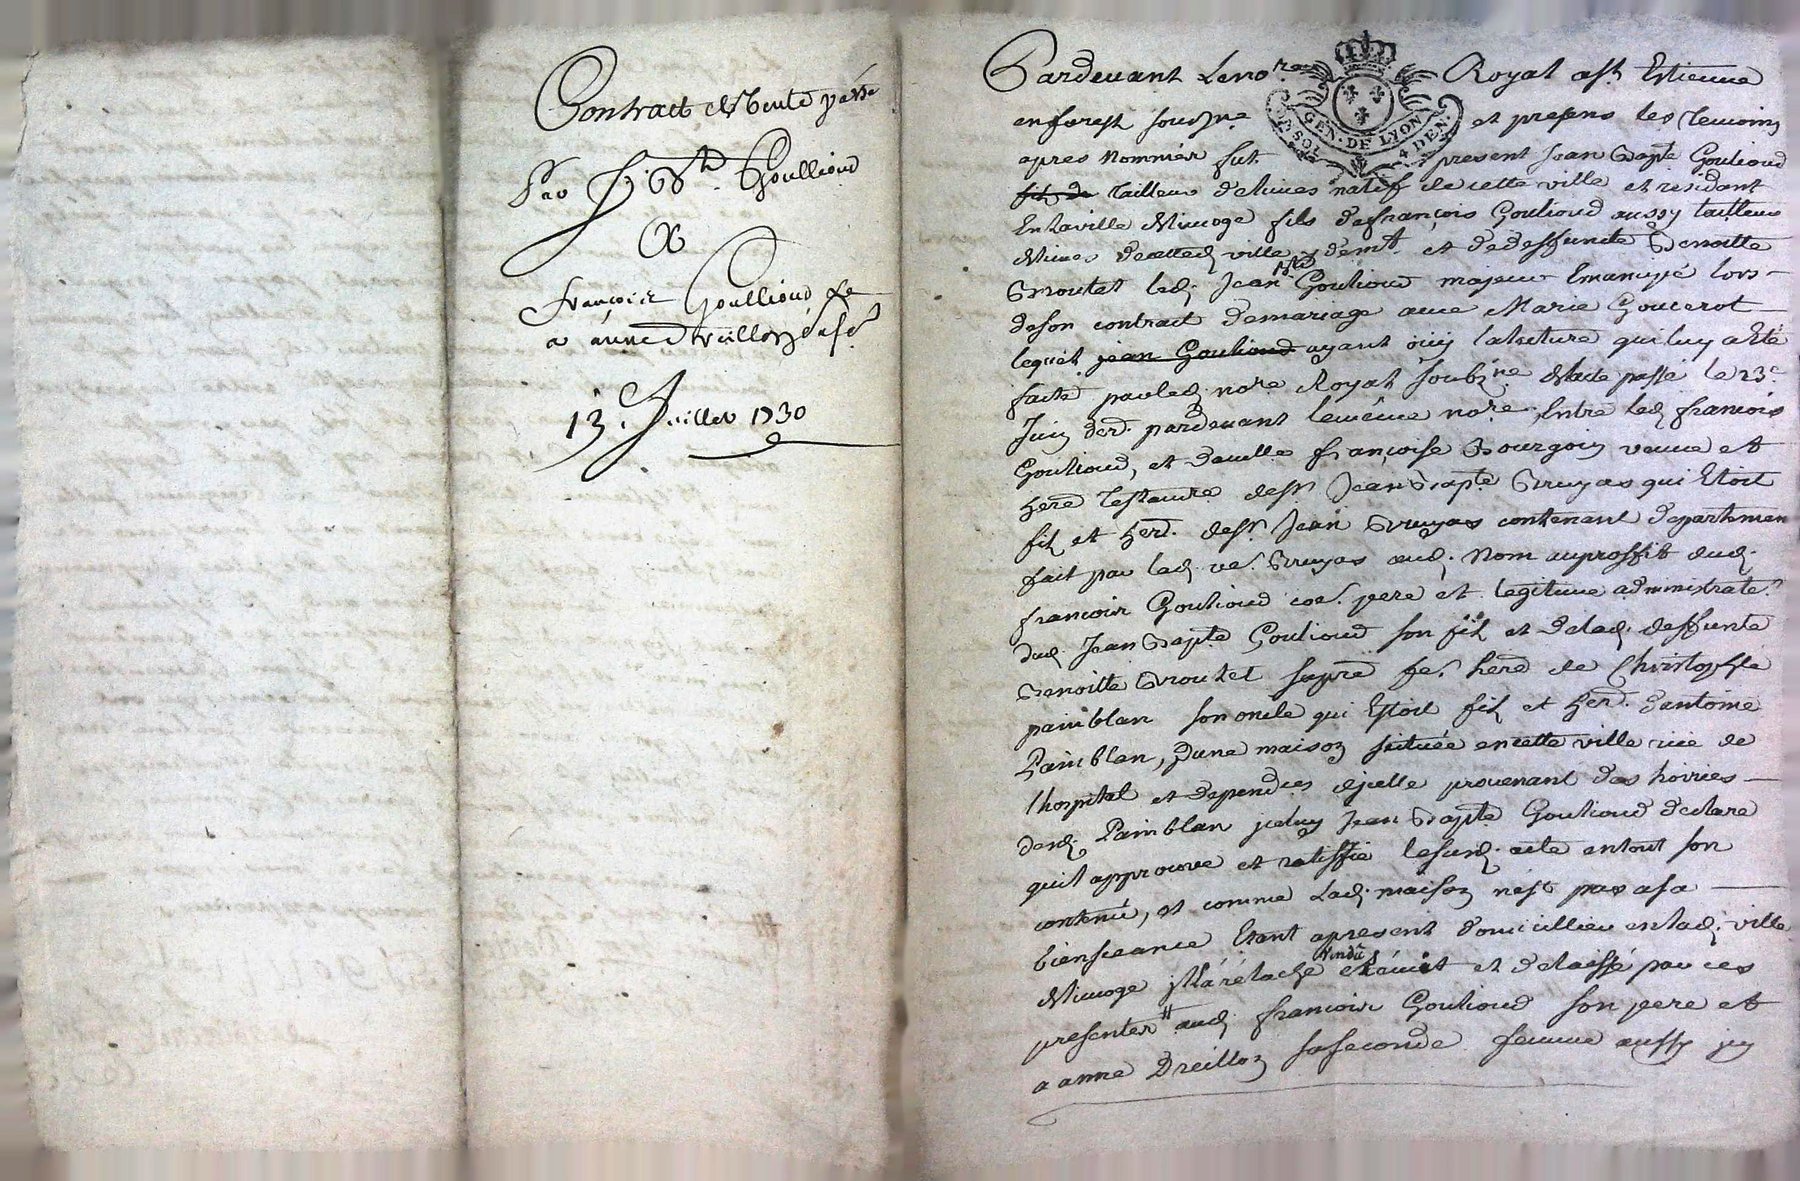 Contract de vente passé
Par Sr J. Bte Goullioud
A
François Goullioud &
a anne Dreillon sa fe
13 Juillet 1730
Pardevant Le nore Royal a St Estienne
en forest sousigné et presens les temoins
GEN. DE LYON
4 DEN.
apres nommés fut present Jean Bapte Goulioud
fils de tailleur de limes natif de cette ville et residant
En la ville de Limoge fils de françois Goulioud aussy tailleur
de limes de cette d. ville y demt. et de deffuncte Benoitte
Broutet led. Jean Bte Goulioud majeur Emancipé lors
de son contract de mariage avec Marie Goucerot
lequel jean Goulioud ayant ouy la lecture qui luy a Eté
faite par led. nore Royal soubsne de l'acte passé le 23e
Juin der. pardevant le même nore, Entre led. françois
Goulioud, et demlle françoise Bourgoin veuve et
here Testamre de Sr Jean Bapte Bruyas qui Etoit
fils et her. de Sr Jean Bruyas contenant departement
fait par lad. ve Bruyas aud. Nom au proffit dud.
françois Goulioud coe. pere et legitime administrater
dud. Jean Bapte Goulioud son fils et de lad. deffunte
Benoitte Broutet sa pre fe here de Christophle
painblan son oncle qui Estoit fils et her. d'antoine
Painblan, d'une maison scituée en cette ville rue de
l'hospital et dependces d'jcelle provenant des hoiries
desd. Painblan jceluy Jean Bapte Goulioud declare
qu'il approuve et ratiffie le susd. acte en tout son
contenu, et comme Lad. maison n'est pas a sa
bienseance Etant apresent domicillié en lad. ville
de Limoge jl a relaché vendu et delaissé par ces
presentes # aud. françois Goulioud son pere et
a anne Dreillon sa seconde femme aussy jcy